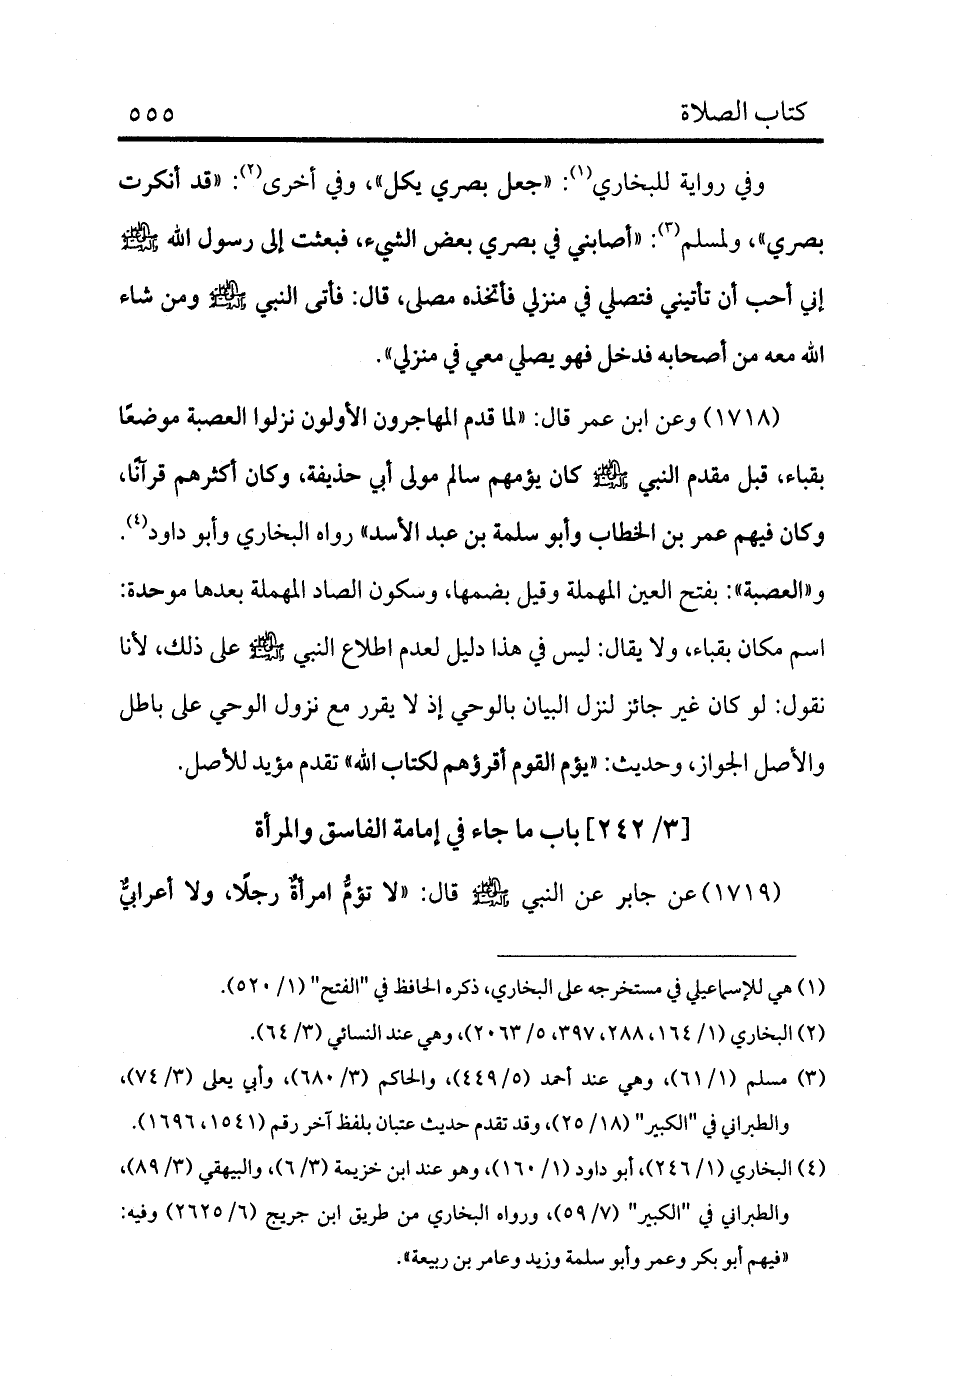 كتاب الصلاة ٥٥٥
وفي رواية للبخاري(١): «جعل بصري يكل»، وفي أخرى(٢): «قد أنكرت
بصري»، ولمسلم(٣): «أصابني في بصري بعض الشيء، فبعثت إلى رسول الله ﷺ
إني أحب أن تأتيني فتصلي في منزلي فأتخذه مصلى، قال: فأتى النبي ﷺ ومن شاء
الله معه من أصحابه فدخل فهو يصلي معي في منزلي».
(١٧١٨) وعن ابن عمر قال: «لما قدم المهاجرون الأولون نزلوا العصبة موضعًا
بقباء، قبل مقدم النبي ﷺ كان يؤمهم سالم مولى أبي حذيفة، وكان أكثرهم قرآنًا،
وكان فيهم عمر بن الخطاب وأبو سلمة بن عبد الأسد» رواه البخاري وأبو داود(٤).
و«العصبة»: بفتح العين المهملة وقيل بضمها، وسكون الصاد المهملة بعدها موحدة:
اسم مكان بقباء، ولا يقال: ليس في هذا دليل لعدم اطلاع النبي ﷺ على ذلك، لأنا
نقول: لو كان غير جائز لنزل البيان بالوحي إذ لا يقرر مع نزول الوحي على باطل
والأصل الجواز، وحديث: «يؤم القوم أقرؤهم لكتاب الله» تقدم مؤيد للأصل.
[٣/ ٢٤٢] باب ما جاء في إمامة الفاسق والمرأة
(١٧١٩) عن جابر عن النبي ﷺ قال: «لا تؤمُّ امرأةٌ رجلًا، ولا أعرابيٌّ
(١) هي للإسماعيلي في مستخرجه على البخاري، ذكره الحافظ في "الفتح" (١/ ٥٢٠).
(٢) البخاري (١/ ١٦٤، ٢٨٨، ٣٩٧، ٥/ ٢٠٦٣)، وهي عند النسائي (٣/ ٦٤).
(٣) مسلم (١/ ٦١)، وهي عند أحمد (٥/ ٤٤٩)، والحاكم (٣/ ٦٨٠)، وأبي يعلى (٣/ ٧٤)،
والطبراني في "الكبير" (١٨/ ٢٥)، وقد تقدم حديث عتبان بلفظ آخر رقم (١٥٤١، ١٦٩٦).
(٤) البخاري (١/ ٢٤٦)، أبو داود (١/ ١٦٠)، وهو عند ابن خزيمة (٣/ ٦)، والبيهقي (٣/ ٨٩)،
والطبراني في "الكبير" (٧/ ٥٩)، ورواه البخاري من طريق ابن جريج (٦/ ٢٦٢٥) وفيه:
«فيهم أبو بكر وعمر وأبو سلمة وزيد وعامر بن ربيعة».